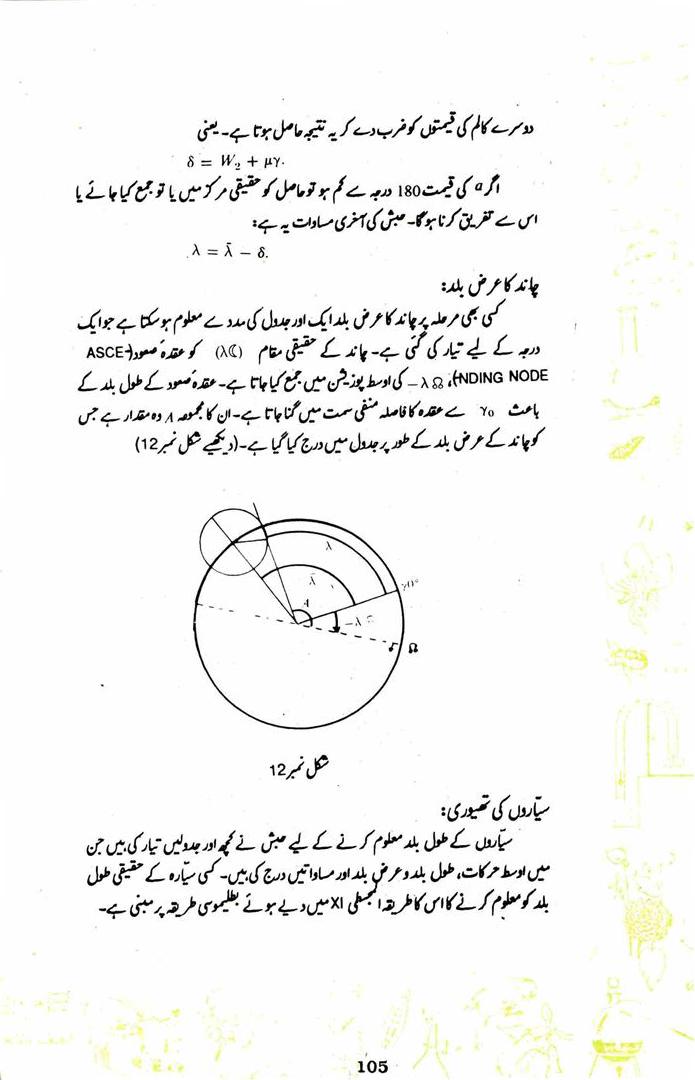 دوسرے کالم کی قیمتوں کو ضرب دے کر یہ نتیجہ حاصل ہوتا ہے۔ یعنی
δ = W₂ + μγ.
اگر α کی قیمت 180 درجہ سے کم ہو تو حاصل کو حقیقی مرکز میں یا تو جمع کیا جائے یا
اس سے تفریق کرنا ہوگا۔ حبش کی آخری مساوات یہ ہے:
λ = λ̄ − δ.
چاند کا عرض بلد:
کسی بھی مرحلہ پر چاند کا عرض بلد ایک اور جدول کی مدد سے معلوم ہو سکتا ہے جو ایک
درجہ کے لیے تیار کی گئی ہے۔ چاند کے حقیقی مقام (λ☾) کو عقدہ صعود (ASCE-
NDING NODE)، λ☊− کی اوسط پوزیشن میں جمع کیا جاتا ہے۔ عقدہ صعود کے طول بلد کے
باعث γ₀ سے عقدہ کا فاصلہ منفی سمت میں گنا جاتا ہے۔ ان کا مجموعہ A وہ مقدار ہے جس
کو چاند کے عرض بلد کے طور پر جدول میں درج کیا گیا ہے۔ (دیکھیے شکل نمبر 12)
λ
λ̄
γ0°
A
−λ
☊
شکل نمبر 12
سیّاروں کی تھیوری:
سیّاروں کے طول بلد معلوم کرنے کے لیے حبش نے کچھ اور جدولیں تیار کی ہیں جن
میں اوسط حرکات، طول بلد و عرض بلد اور مساواتیں درج کی ہیں۔ کسی سیّارہ کے حقیقی طول
بلد کو معلوم کرنے کا اس کا طریقہ المجسطی XI میں دیے ہوئے بطلیموسی طریقہ پر مبنی ہے۔
105